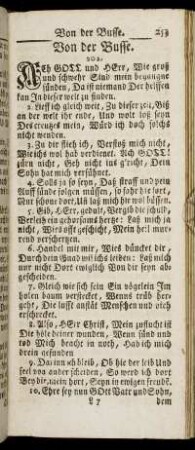 Von der Busse. 253
Von der Busse.
Ach GOTT und HErr, Wie groß
und schwehr Sind mein begangne
sünden, Da ist niemand Der helffen
kan In dieser welt zu finden.
2. Lieff ich gleich weit, Zu dieser zeit, Biß
an der welt ihr ende, Und wolt loß seyn
Des creutzes mein, Würd ich doch solchs
nicht wenden.
3. Zu dir flieh ich, Verstoß mich nicht,
Wie ichs wol hab verdienet. Ach GOTT!
zürn nicht, Geh nicht ins gericht, Dein
Sohn hat mich versühnet.
4. Solls ja so seyn, Daß straff und pein
Auff sünde folgen müssen, so fahr hie fort,
Nur schone dort, Und laß mich hie wol büssen.
5. Gib, HErr, gedult, Vergiß die schuld,
Verleih ein gehorsams hertze: Laß mich ja
nicht, Wies offt geschicht, Mein heil murrend
verschertzen.
6. Handel mit mir, Wies düncket dir,
Durch dein Gnad wil ichs leiden: Laß mich
nur nicht Dort ewiglich Von dir seyn abgescheiden.
7. Gleich wie sich fein Ein vögelein Im
holen baum verstecket, Wenns trüb hergeht,
Die lufft unstät Menschen und vieh
erschrecket.
8. Also, HErr Christ, Mein zuflucht ist
Die höle deiner wunden, Wenn sünd und
tod Mich bracht in noth, Hab ich mich
drein gefunden
9. Darinn ich bleib, Ob hie der leib Und
seel von ander scheiden, So werd ich dort
Bey dir, mein hort, Seyn in ewigen freudē.
10. Ehre sey nun GOtt Vatr und Sohn,
dem